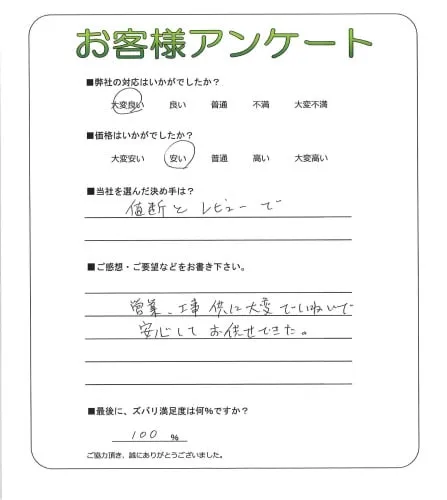 お客様アンケート
■弊社の対応はいかがでしたか？
大変良い 良い 普通 不満 大変不満
■価格はいかがでしたか？
大変安い 安い 普通 高い 大変高い
■当社を選んだ決め手は？
値断と レビューで
■ご感想・ご要望などをお書き下さい。
営業、工事 供に大変ていねいで
安心して お供せできた。
■最後に、ズバリ満足度は何％ですか？
100 ％
ご協力頂き、誠にありがとうございました。